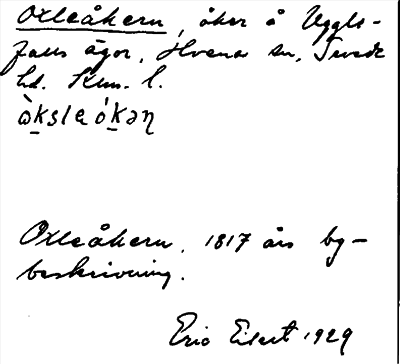 Oxleåkern, åker å Uggle-
falls ägor, Hvena sn, Tvede
hd. Klm. l.
Oxleåkern, 1817 års by-
beskrivning.
Eric Elgert 1929